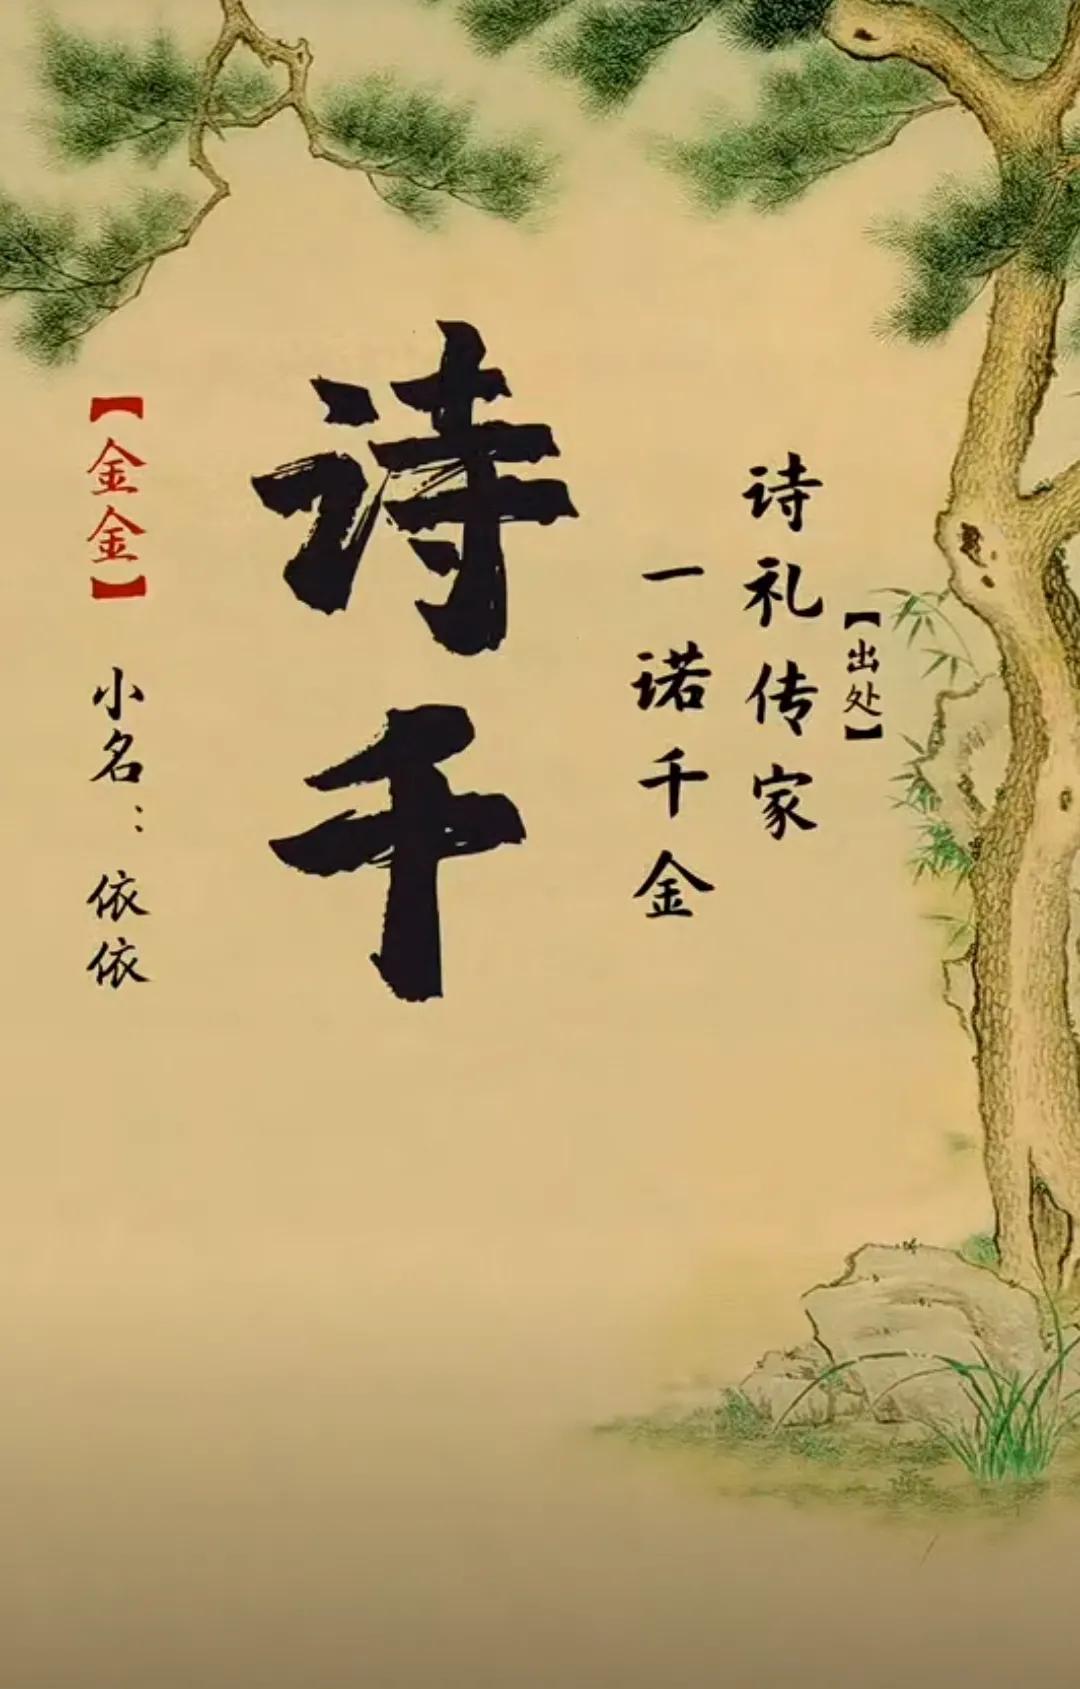 【出处】
诗礼传家
一诺千金
诗千
【金金】
小名：依依